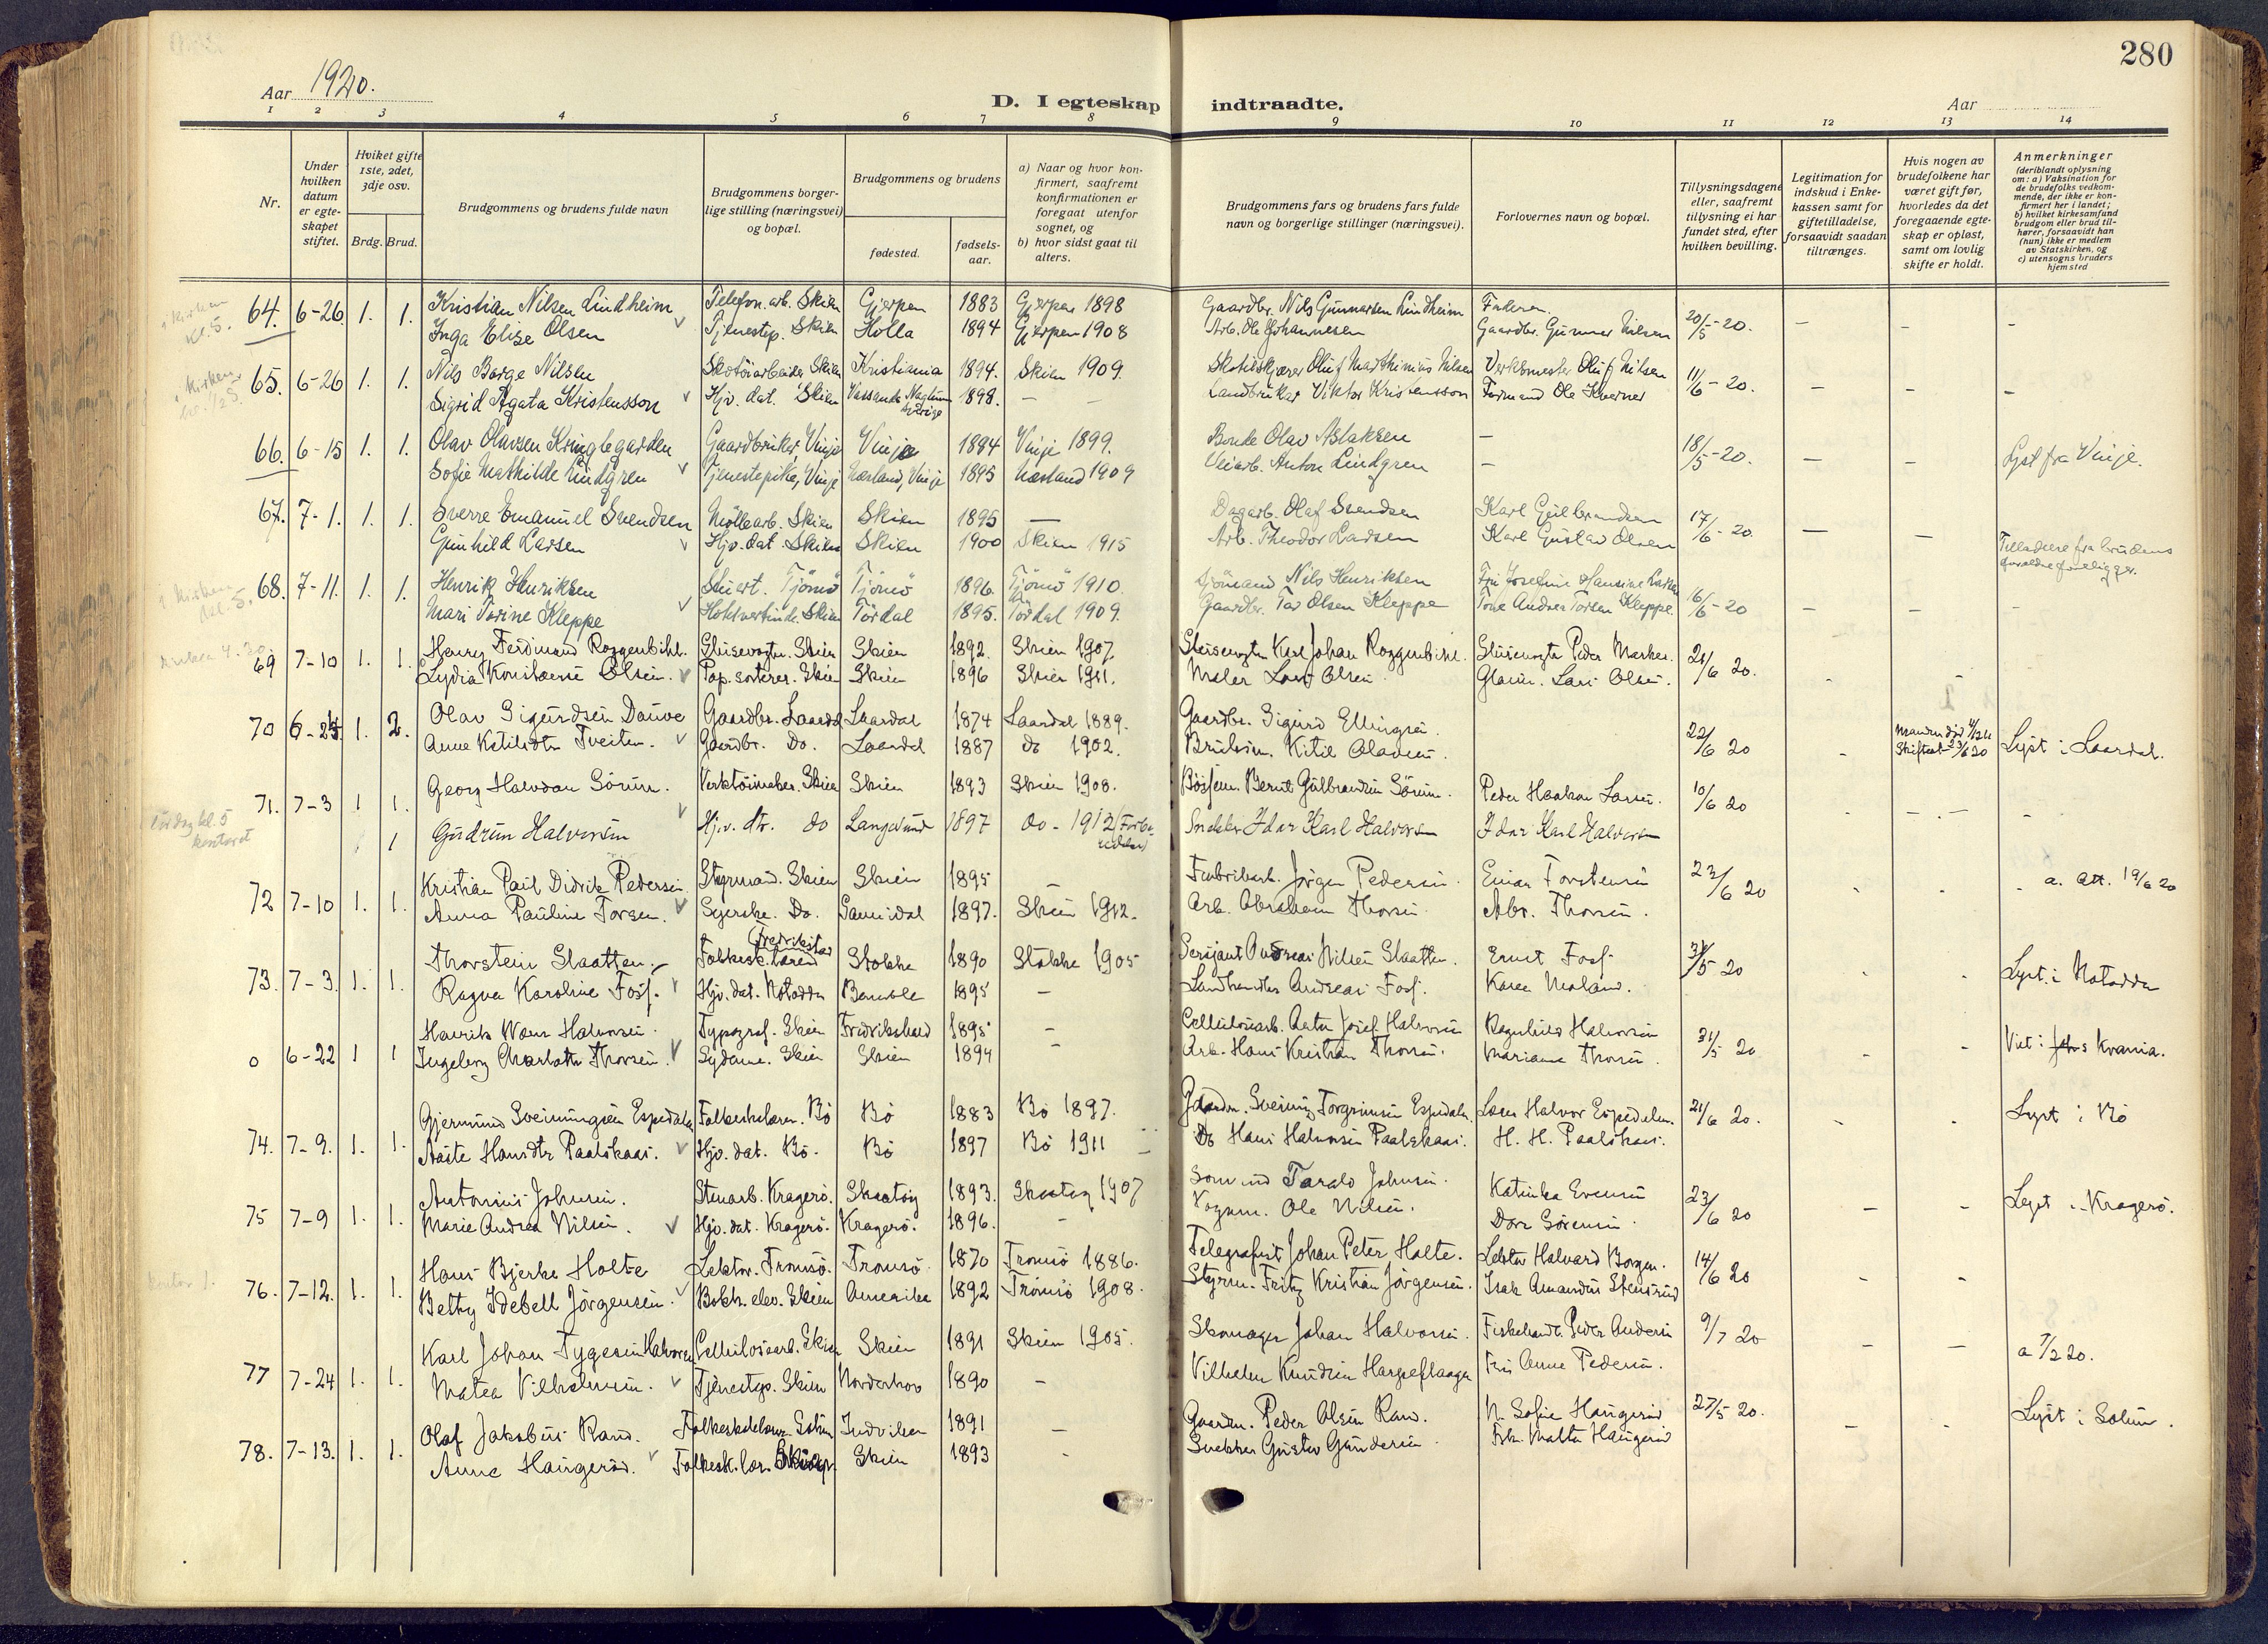 280
Aar 1920.
D. I egteskap indtraadte.
Aar
1 2 3 4 5 6 7 8 9 10 11 12 13 14
Nr.
Under hvilken datum er egteskapet stiftet.
Hviket gifte 1ste, 2det, 3dje osv.
Brdg. Brud.
Brudgommens og brudens fulde navn
Brudgommens borgerlige stilling (næringsvei) og bopæl.
Brudgommens og brudens
fødested.
fødselsaar.
a) Naar og hvor konfirmert, saafremt konfirmationen er foregaat utenfor sognet, og
b) hvor sidst gaat til alters.
Brudgommens fars og brudens fars fulde navn og borgerlige stillinger (næringsvei).
Forlovernes navn og bopæl.
Tillysningsdagene eller, saafremt tillysning ei har fundet sted, efter hvilken bevilling.
Legitimation for indskud i Enkekassen samt for giftetilladelse, forsaavidt saadan tiltrænges.
Hvis nogen av brudefolkene har været gift før, hvorledes da det foregaaende egteskap er opløst, samt om lovlig skifte er holdt.
Anmerkninger (deriblandt oplysning om: a) Vaksination for de brudefolks vedkommende, der ikke er konfirmert her i landet; b) hvilket kirkesamfund brudgom eller brud tilhører, forsaavidt han (hun) ikke er medlem av Statskirken, og c) utensogns bruders hjemsted
64. 6-26 1. 1. Kristian Nilsen Lindheim Telefon.arb. Skien Gjerpen 1883 Gjerpen 1898 Gaardbr. Nils Gunnarsen Lindheim Faderen. 20/5-20. – – –
Inga Elise Olsen Tjenestep. Skien Holla 1894 Gjerpen 1908 Arb. Ole Johannesen Gaardbr. Gunnar Nilsen
65. 6-26 1. 1. Nils Borge Nilsen Skotøiarbeider Skien Kristiania 1894. Skien 1909. Oluf Marthinius Nilsen Verksmester Oluf Nilsen 11/6-20. – – –
Sigrid Agata Kristensson Hjv. dat. Skien 1898. – – Landbruker Viktor Kristensson Formand Ole Kverner
66. 6-15 1. 1. Olav Olavsen Kringlegarden Gaardbruker, Vinje Vinje 1884 Vinje 1899. Bonde Olav Aslaksen – 18/5-20. – – Lyst fra Vinje.
Sofie Mathilde Lindgren Tjenestepike, Vinje Næsland, Vinje 1895 Næsland 1909 Veiarb. Anton Lindgren –
67. 7-1. 1. 1. Sverre Emanuel Svendsen Møllearb. Skien Skien 1895 – Dagarb. Olaf Svendsen Karl Gulbrandsen 17/6-20. – –
Gunhild Larsen Hjv. dat. Skien Skien 1900 Skien 1915 Arb. Theodor Larsen Karl Gustav Olsen Tilladelse fra brudens forældre foreligger.
68. 7-11. 1. 1. Henrik Henriksen Tjömö Tjömö 1896. Tjömö 1910. Sjömand Nils Henriksen 16/6-20 – – –
Mari Torine Kleppe Skien Tördal 1895. Tördal 1909. Gaardbr. Tov Olsen Kleppe Tone Andrea Torsen Kleppe.
69 7-10 1. 1. Henry Ferdinand Roggenbihl. Slusevogter. Skien Skien 1892. Skien 1907. Slusevogter Karl Johan Roggenbihl. Slusevogter Peder Marker. 21/6 20.
Lydia Konstanse Olsen. Pap. sorterer. Skien Skien 1896 Skien 1911. Maler Lars Olsen. Lars Olsen.
70 6-25. 1. 2. Olav Sigurdsen Dauve Gaardbr. Laardal Laardal 1874 Laardal 1889. Gaardbr. Sigurd Ellingsen. 22/6 20 Lyst i Laardal.
Anne Ketilsdtr Tveiten. Gaardbr. Do. Laardal 1887 do 1902. Ketil Olavsen.
71. 7-3 1 1. Georg Halvdan Sörum. Verktöimaker. Skien Skien 1893 Skien 1908. Bernt Gulbrandsen Sörum. Peder Haakon Larsen. 10/6 20
1 Gudrun Halvorsen Hjv. dtr. do Langesund 1897 do - 1912 Snekker Idar Karl Halvorsen Idar Karl Halvorsen
72 7-10 1. 1. Kristian Paul Didrik Pedersen Styrmand. Skien Skien 1895 – Fabrikarb. Jørgen Pedersen. Einar Torstensen 23/6 20 a. att. 19/6 20
Anna Pauline Torsen. Syerske. Do. 1897. Skien 1912. Arb. Abraham Thorsen. Abr. Thorsen.
73. 7-3. 1. 1. Thorstein Slaatten. Folkesk.lærer Fredrikstad Stokke 1890 Stokke 1905 Sersjant Andreas Nilsen Slaatten. Ernst Foss. 31/5 20 Lyst i Notodden
Ragna Karoline Foss. Hjv. dat. Notodden Bamble 1895 – Landhandler Andreas Foss. Karen Moland.
0 6-22 1 1 Henrik Halvorsen Typograf. Skien Fredrikshald 1895 – Cellulosearb. Josef Halvorsen Ragnhild Halvorsen 31/5 20 Viet i Kvania.
Ingeborg Charlotte Thorsen. Sydame. Skien Skien 1894 – Arb. Hans Kristian Thorsen. Marianne Thorsen.
74. 7-9. 1. 1. Gjermund Sveinungsen Espedalen Folkeskolelærer. Bö Bö 1883 Bö 1897. Gaardm. Sveinung Torgrimsen Espedalen Lærer Halvor Espedalen. 21/6 20. Lyst i Bö
Aaste Hansdtr Paalskaas. Hjv. dat. Bö. Bö 1897 Bö 1911 Do Hans Halvorsen Paalskaas. H. H. Paalskaas.
75 7-9 1. 1. Antonius Johnsen. Stenarb. Kragerö. Skaatöy 1893. Skaatöy 1907 Tarald Johnsen. Katinka Evensen 23/6 20 – – Lyst i Kragerö.
Marie Andrea Nilsen. Hjv. dat. Kragerö. Kragerö. 1896. – Ole Nilsen. Dora Sörensen.
76. 7-12. 1. 1. Hans Bjerke Holte Lektor. Tromsö. Tromsö. 1870 Tromsö 1886. Telegrafist Johan Peter Holte. Lektor Halvard Borgen. 14/6 20
Betty Idebell Jörgensen. Skien Amerika 1892 Tromsö 1908. Styrm. Fritz Kristian Jörgensen. Isak Amandus Stensrud
77 7-24 1. 1. Karl Johan Tygesen Halvorsen Cellulosearb. Skien Skien 1891 Skien 1905. Skomager Johan Halvorsen. Fiskehandl. Peder Andersen 9/7 20 – – a 7/2 20.
Matea Vilhelmsen. Tjenestep. Skien Norderhov 1890 – Vilhelm Knudsen Anne Pedersen.
78. 7-13. 1. 1. Olaf Jakobus Rand. Folkeskolelærer Solum Indviken 1891 – Gaardm. Peder Olsen Rand. Sofie Haugerød 27/5 20. Lyst i Solum.
Anne Haugerød. Folkesk. lær. Skien 1893 – Snekker Gustav Gundersen. Frk. Malta Haugerød